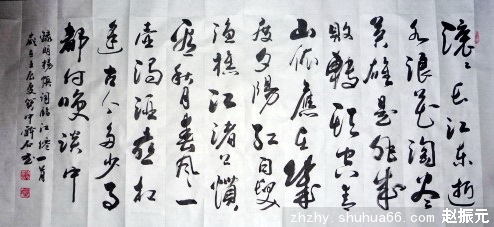 滚〻长江东逝
水浪花淘尽
英雄是非成
败转头空青
山依旧在几
度夕阳红白发
渔樵江渚上惯
看秋月春风一
壶浊酒喜相
逢古今多少事
都付笑谈中
录明杨慎词临江仙一首
zhzhy.shuhua66.com 赵振元